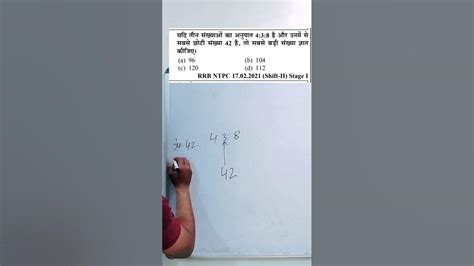 यदि तीन संख्याओं का अनुपात 4:3:8 है और उनमें से
सबसे छोटी संख्या 42 है, तो सबसे बड़ी संख्या ज्ञात
कीजिए।
(a) 96 (b) 104
(c) 120 (d) 112
RRB NTPC 17.02.2021 (Shift-II) Stage I
4:3:8
42
42